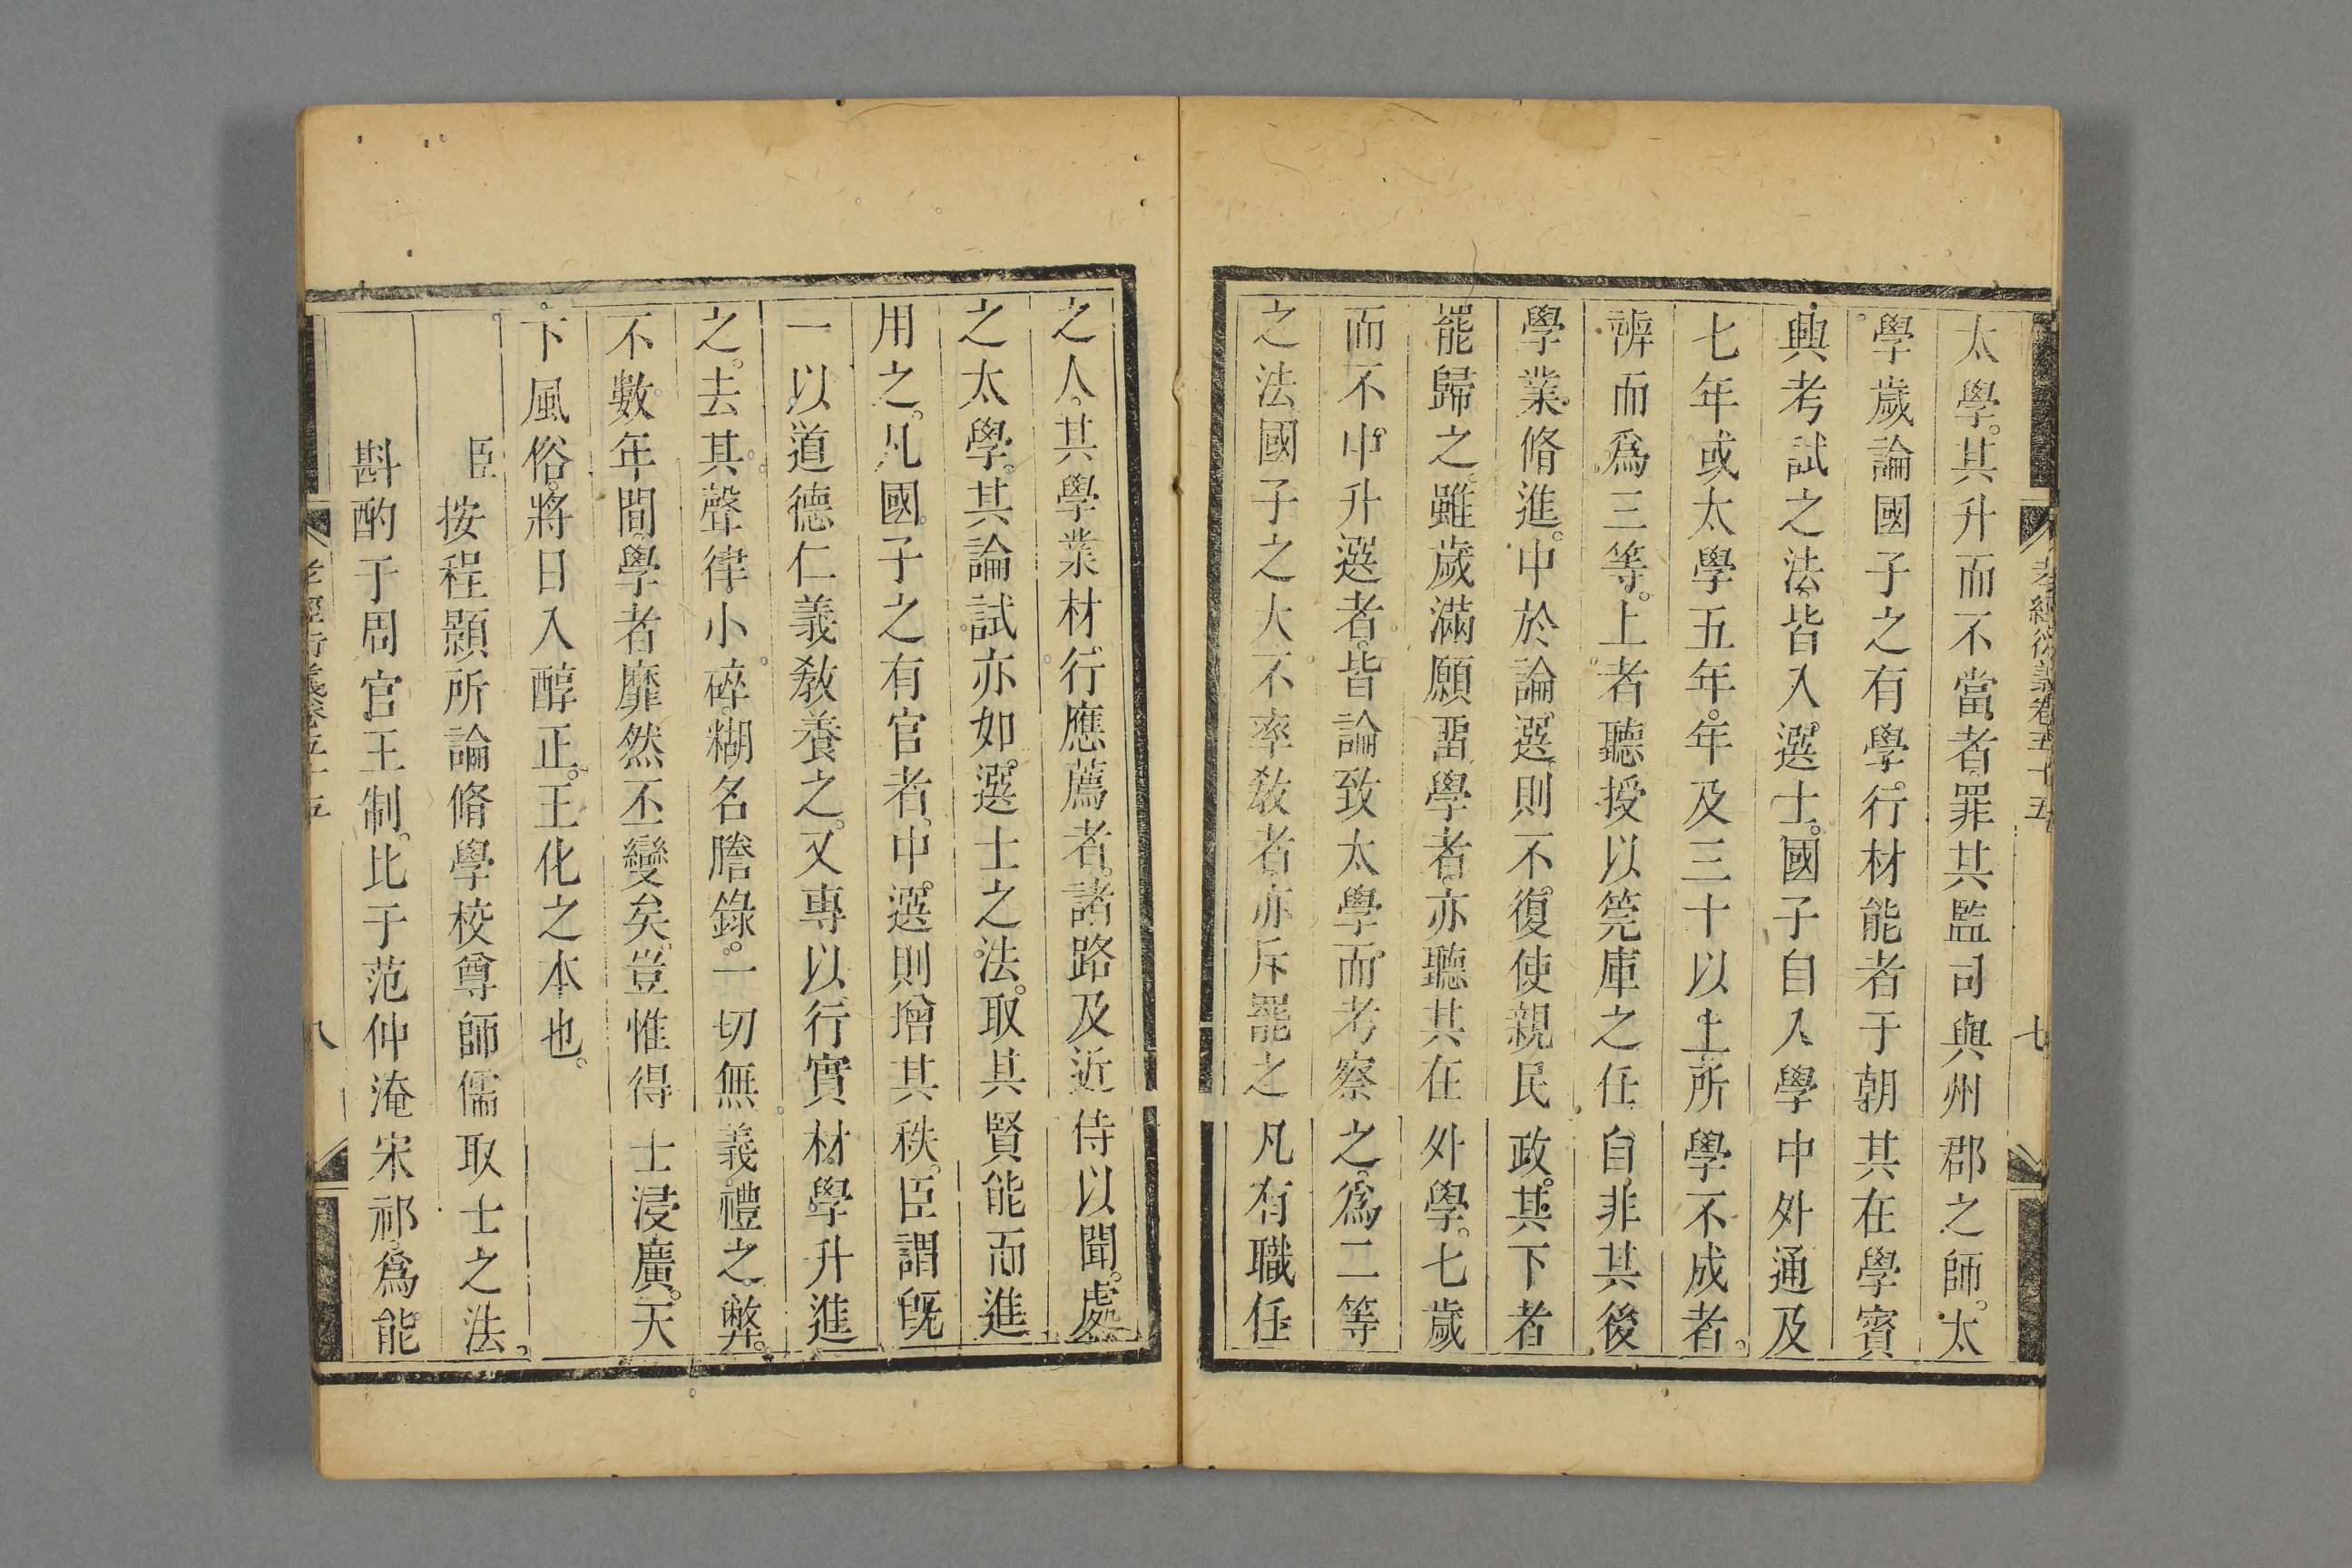 孝經衍義卷五十五
七
太學。其升而不當者罪其監司與州郡之師。太
學歲論國子之有學。行材能者于朝其在學賓
興考試之法。皆入選士。國子自入學中外通及
七年或太學五年。年及三十以上所學不成者。
辨而爲三等。上者聽授以筦庫之任自非其後
學業脩進。中於論選則不復使親民政。其下者
罷歸之。雖歲滿願畱學者亦聽其在外學。七歲
而不中升選者。皆論致太學而考察之。爲二等
之法。國子之大不率教者亦斥罷之凡有職任
之人。其學業材行應薦者。諸路及近侍以聞。處
之太學。其論試亦如選士之法。取其賢能而進
用之。凡國子之有官者。中選則增其秩。臣謂旣
一以道德仁義敎養之。又專以行實材學升進
之。去其聲律小碎糊名謄錄。一切無義禮之弊。
不數年間學者靡然丕變矣。豈惟得士浸廣。天
下風俗。將日入醇正。王化之本也。
臣按程顥所論脩學校尊師儒取士之法。
斟酌于周官王制。比于范仲淹宋祁爲能
孝經衍義卷五十五
八